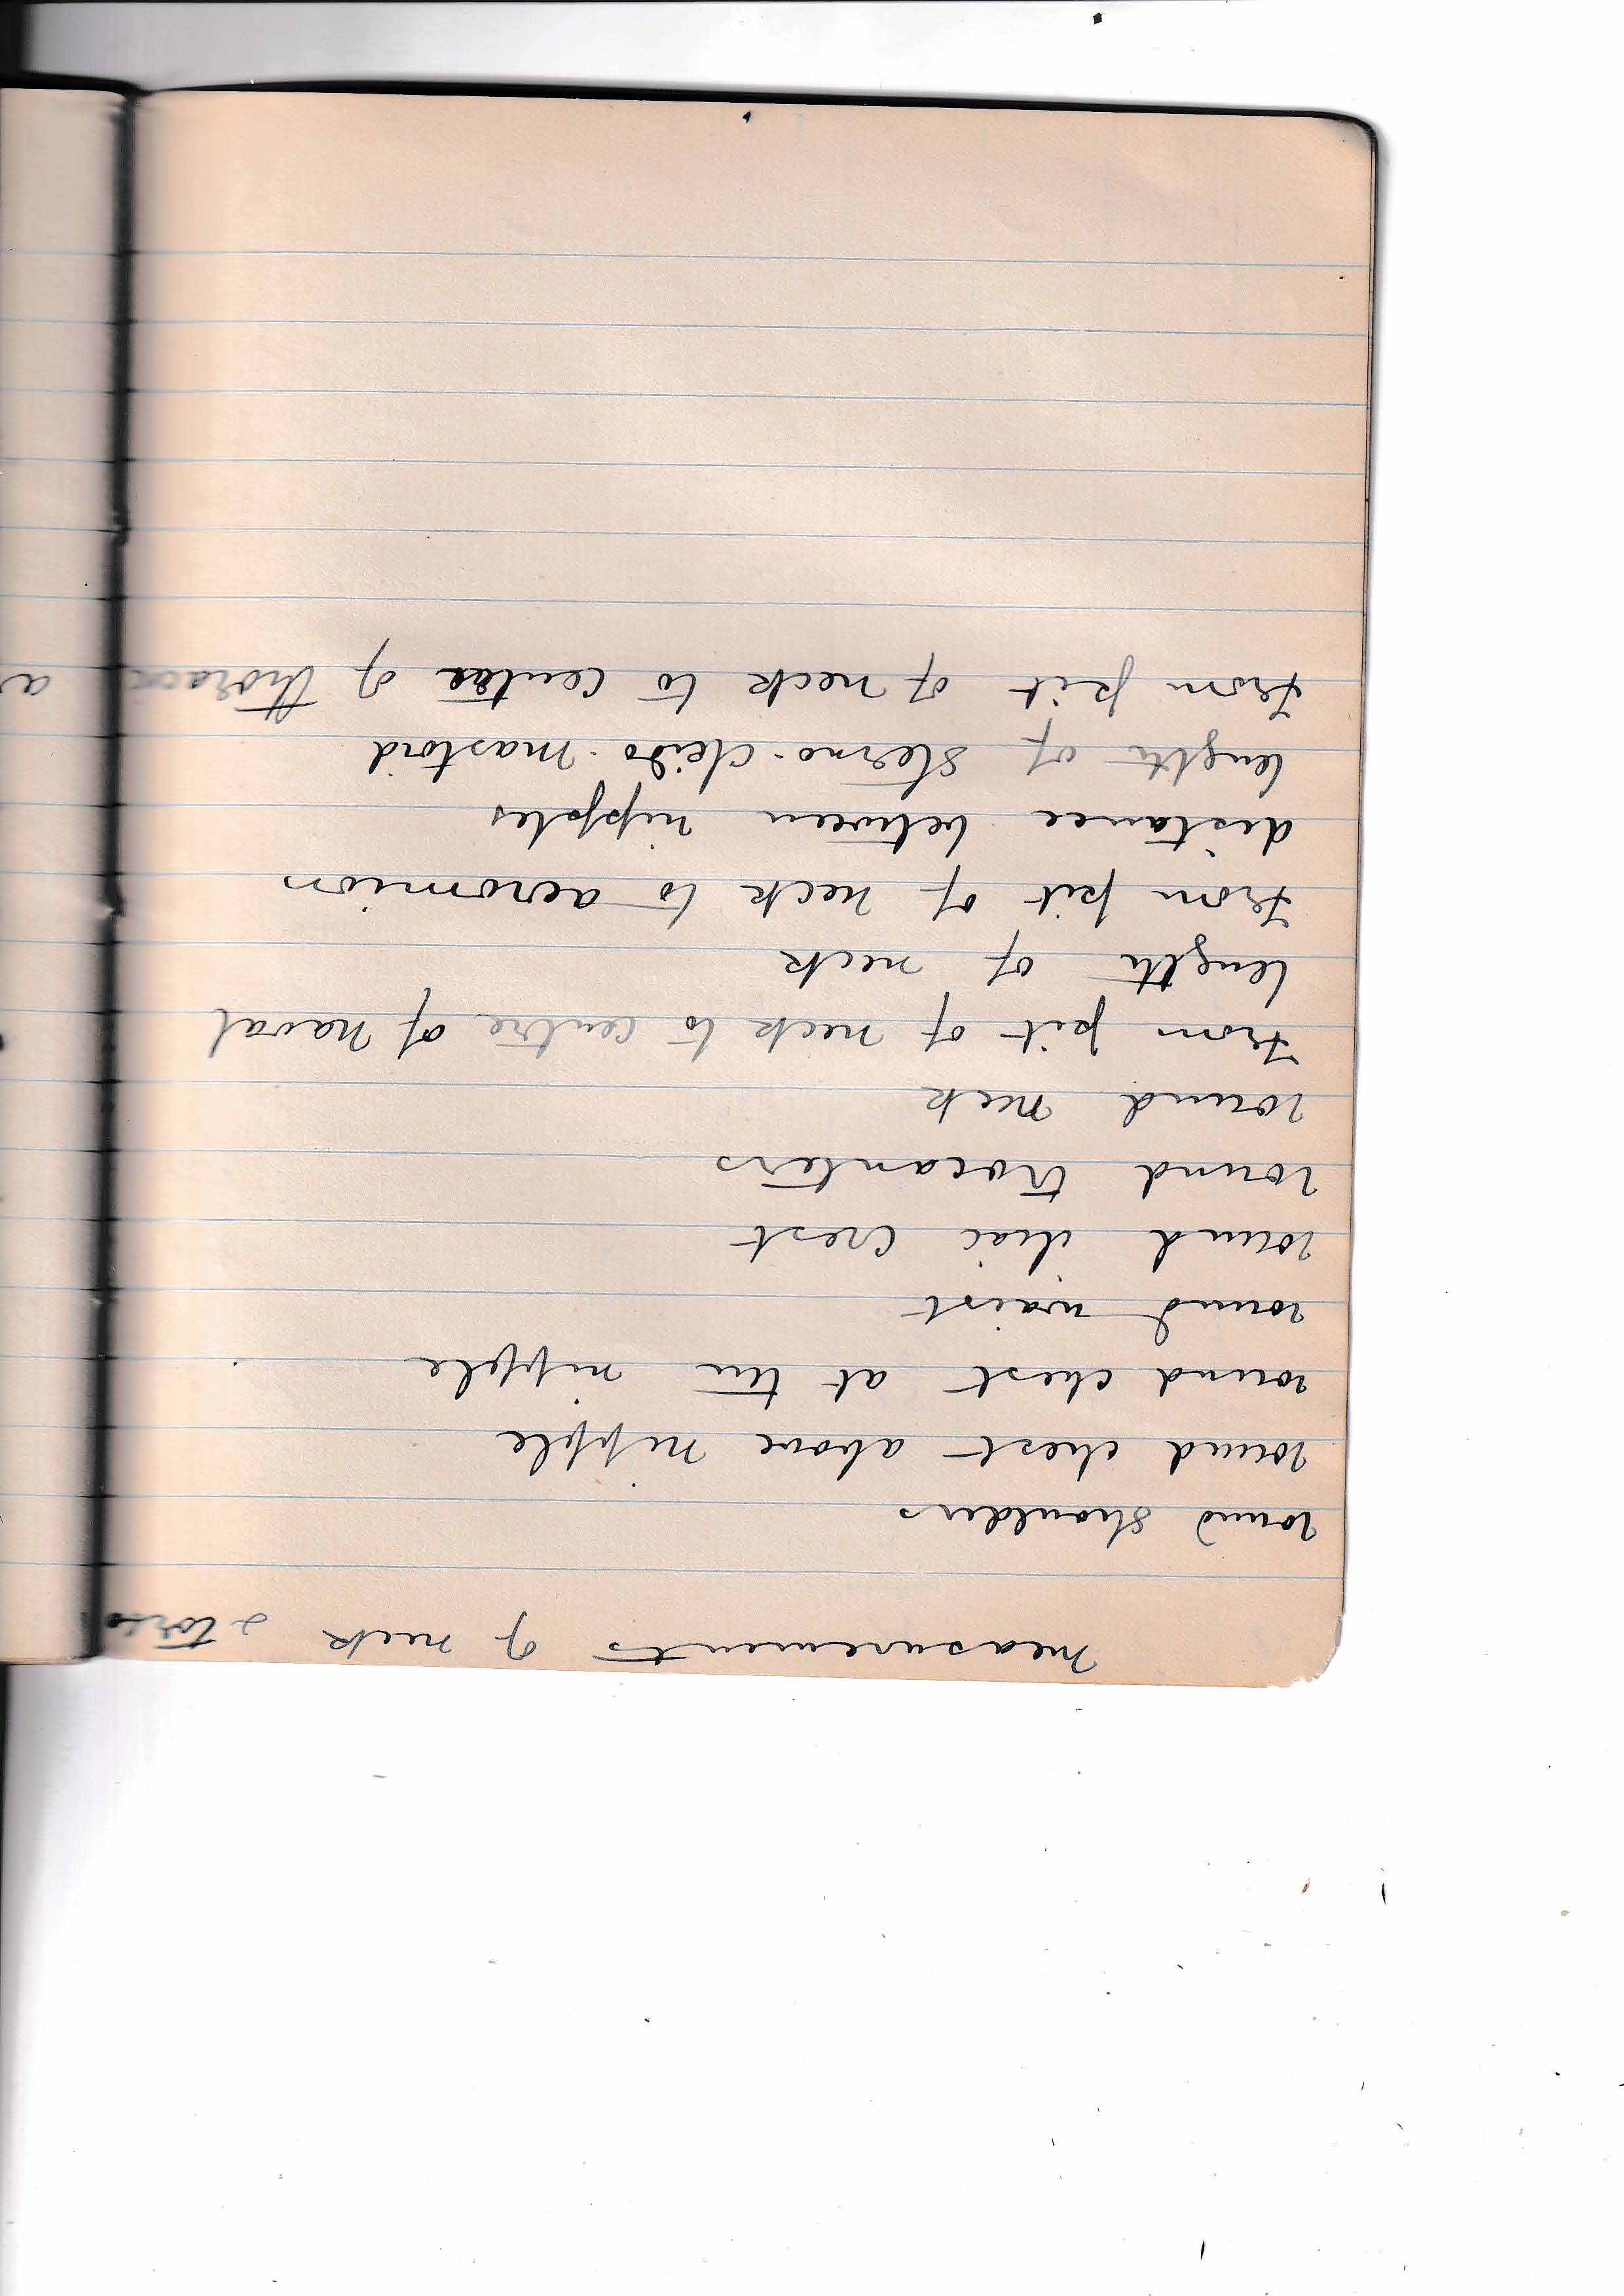 measurements of neck & torso
round shoulders
round chest above nipple
round chest at the nipple
round waist
round iliac crest
round trocanters
round neck
from pit of neck to centre of naval
length of neck
from pit of neck to acromion
distance between nipples
length of sterno-cleido-mastoid
from pit of neck to centre of thoracic a